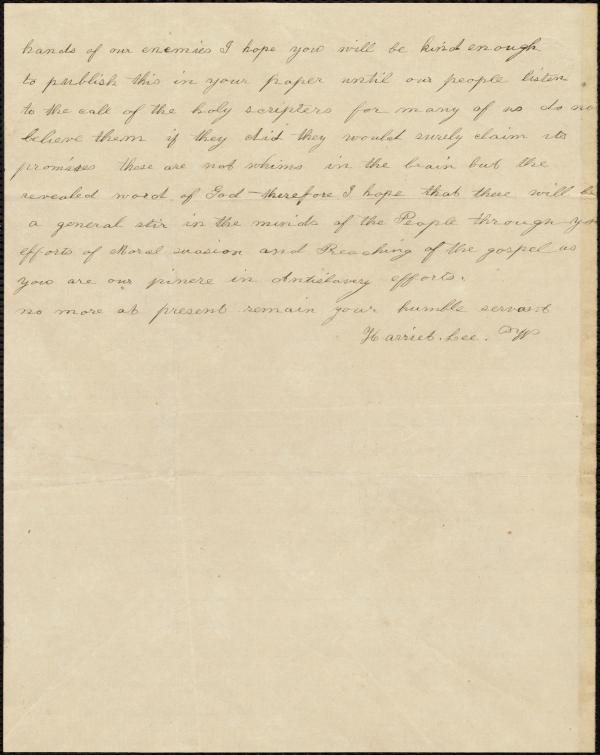 hands of our enemies I hope you will be kind enough
to publish this in your paper until our people listen
to the call of the holy scripters for many of us do no
believe them if they did they would surely claim its
promises these are not whims in the brain but the
revealed word of God - therefore I hope that there will be
a general stir in the minds of the People through yo
efforts of Moral suasion and Preaching of the gospel as
you are our pinere in Antislavery efforts.
no more at present remain your humble servant
Harriet. Lee.